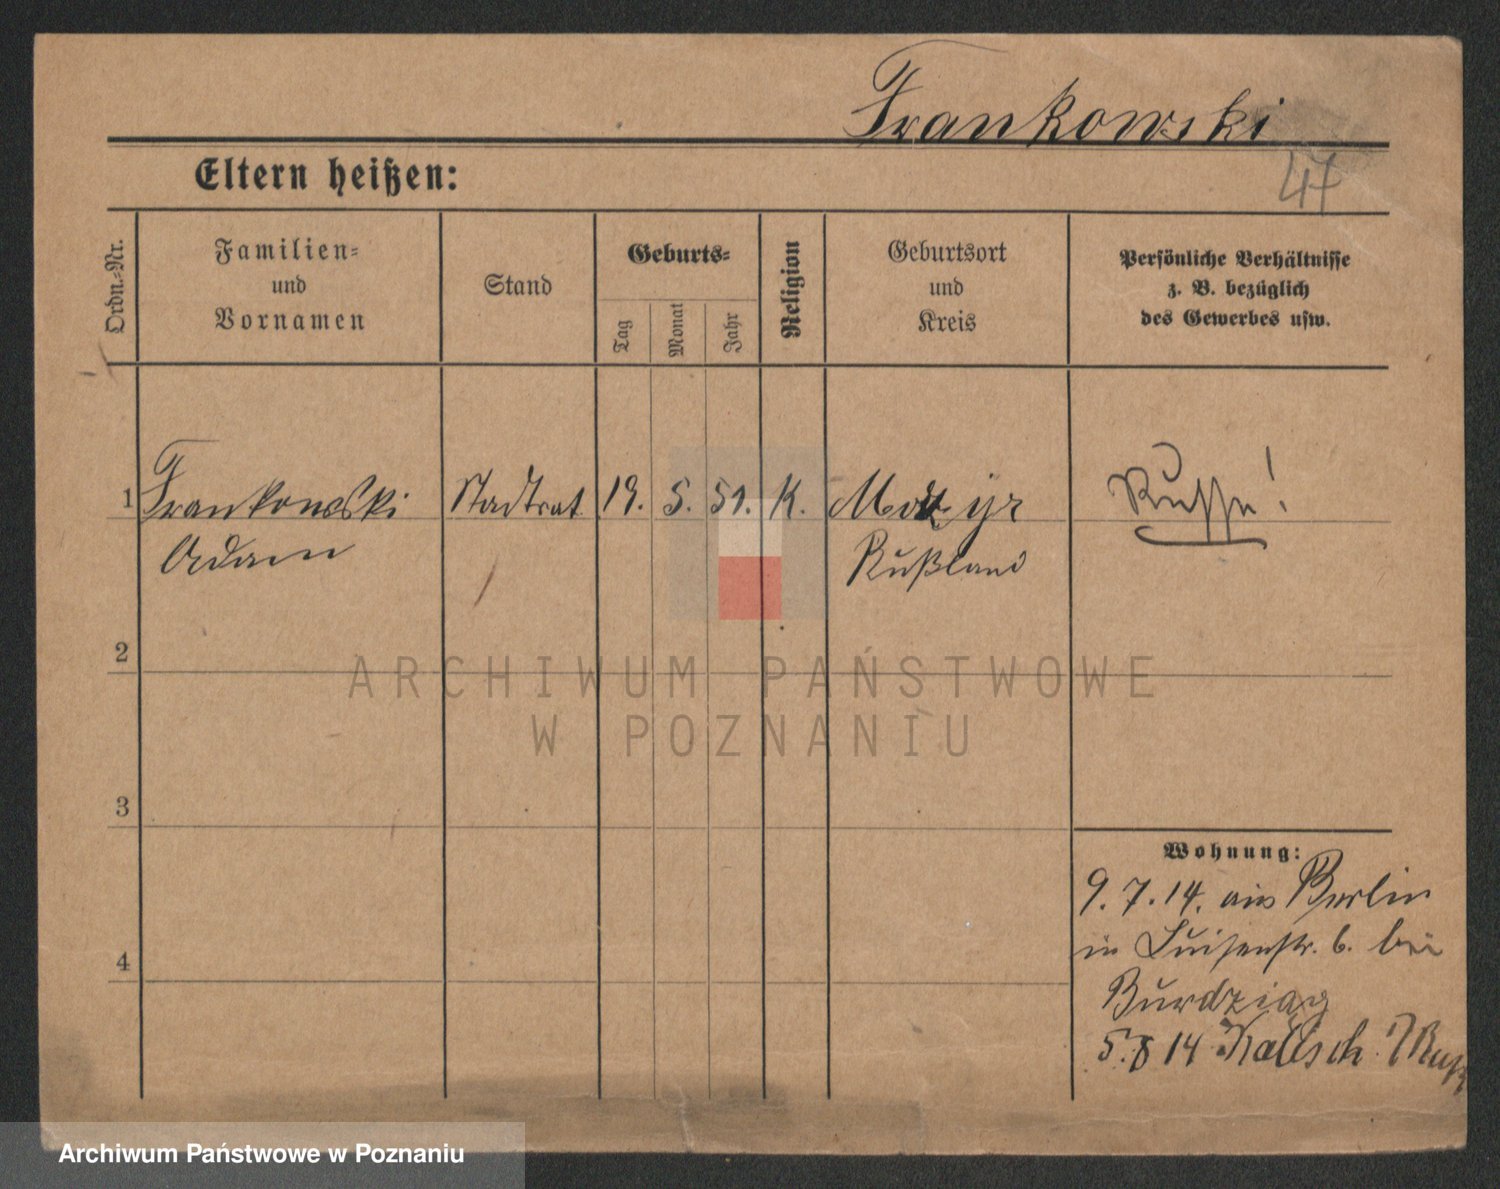 Frankowski
47
Eltern heißen:
Ordn.-Nr.
Familien-
und
Vornamen
Stand
Geburts-
Tag
Monat
Jahr
Religion
Geburtsort
und
Kreis
Persönliche Verhältnisse
z. B. bezüglich
des Gewerbes usw.
1 Frankowski Stadtrat 19. 5. 51. K. Mozyr Russe!
Adam Rußland
2
3
4
Wohnung:
9. 7. 14. aus Berlin
in Luisenstr. 6. bei
Burdziag
5.8 14 Kalisch
ARCHIWUM PAŃSTWOWE
W POZNANIU
Archiwum Państwowe w Poznaniu